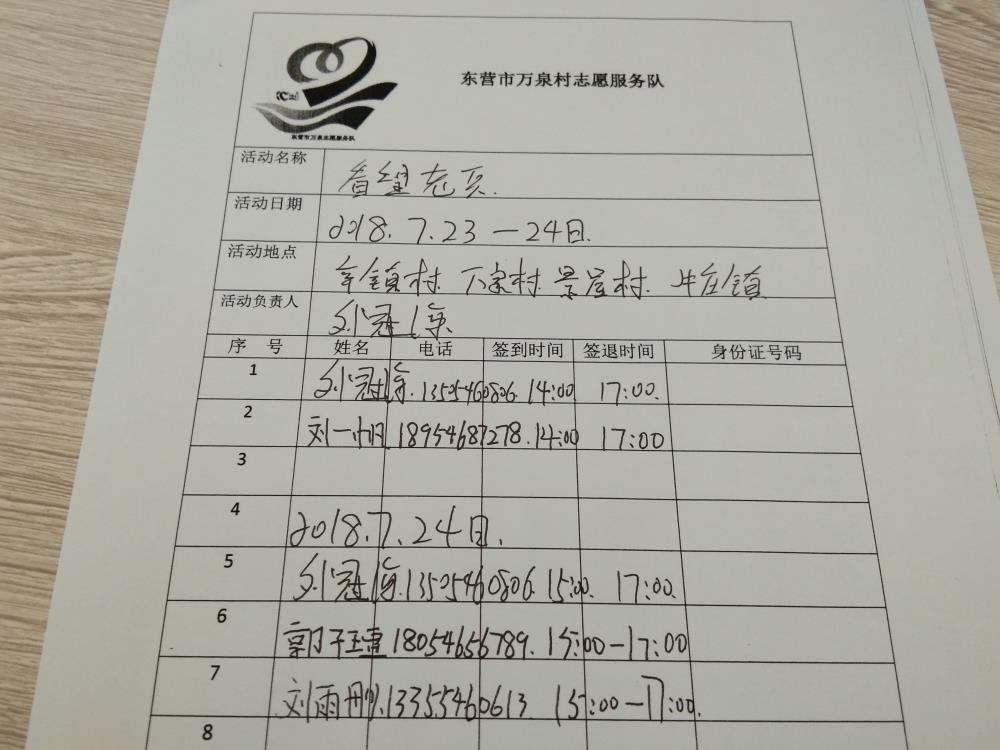 东营市万泉村志愿服务队
东营市万泉志愿服务队
活动名称 看望老兵.
活动日期 2018.7.23—24日.
活动地点 辛镇村 万家村 景屋村. 牛庄镇
活动负责人 刘冠
序 号 姓名 电话 签到时间 签退时间 身份证号码
1 刘冠 13505460806. 14:00 17:00.
2 刘一 18954687278. 14:00 17:00
3
4 2018.7.24日.
5 刘冠 13505460806. 15:00. 17:00.
6 郭 18054656789. 15:00—17:00
7 刘雨 13355460613. 15:00—17:00.
8